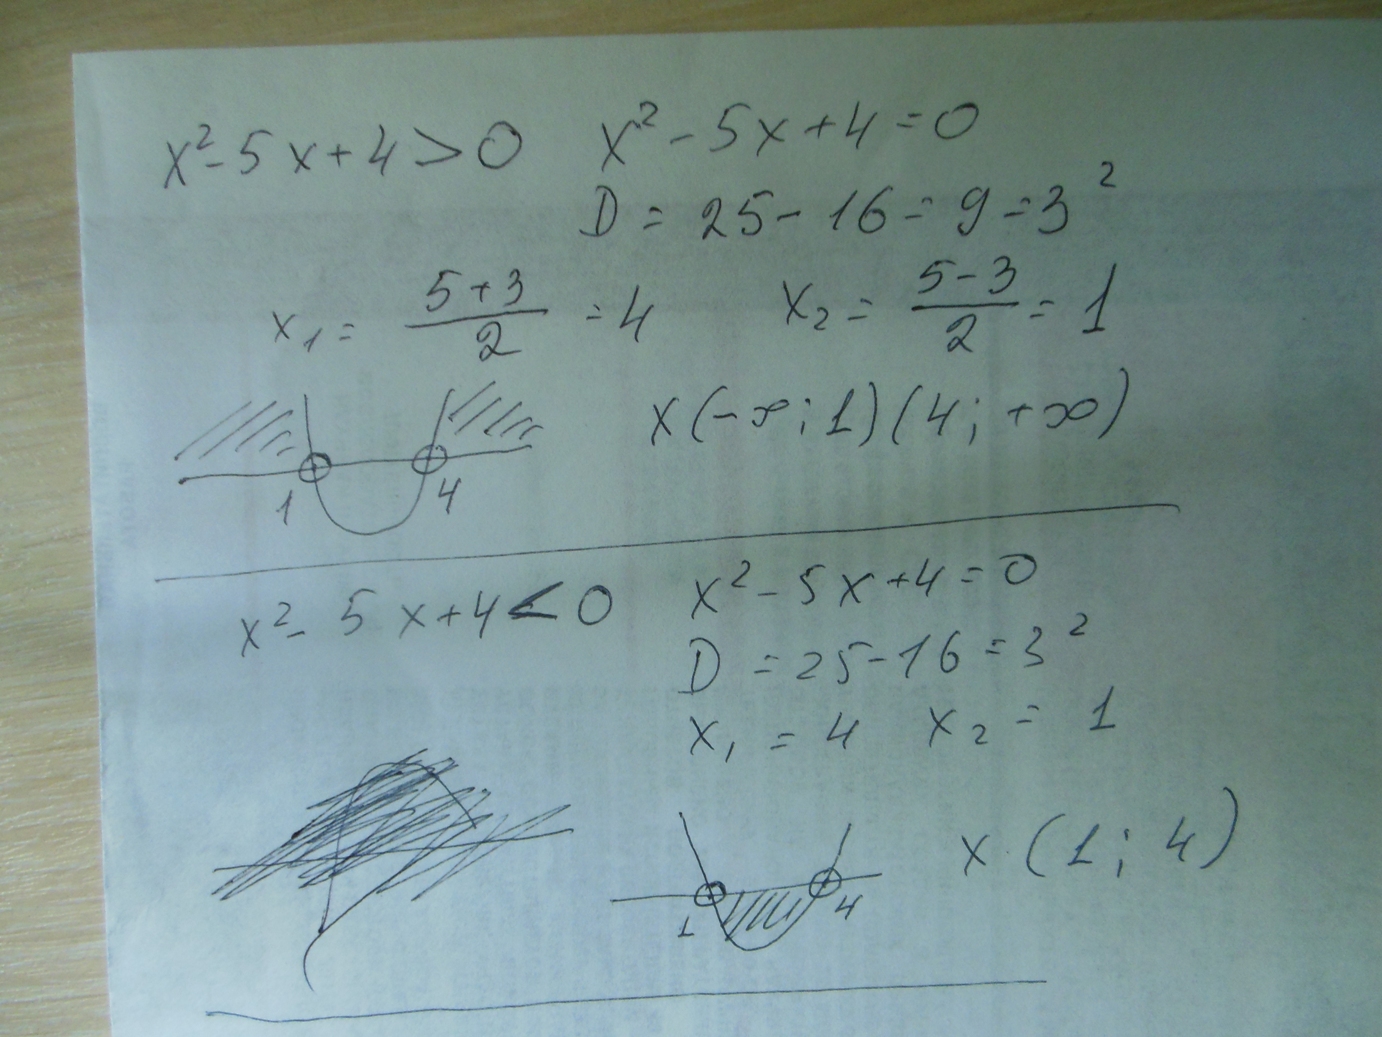 x² - 5x + 4 > 0    x² - 5x + 4 = 0
D = 25 - 16 = 9 = 3²
x₁ = (5+3)/2 = 4    x₂ = (5-3)/2 = 1
x (-∞; 1) (4; +∞)
1    4
x² - 5x + 4 < 0    x² - 5x + 4 = 0
D = 25 - 16 = 3²
x₁ = 4    x₂ = 1
x (1; 4)
1    4